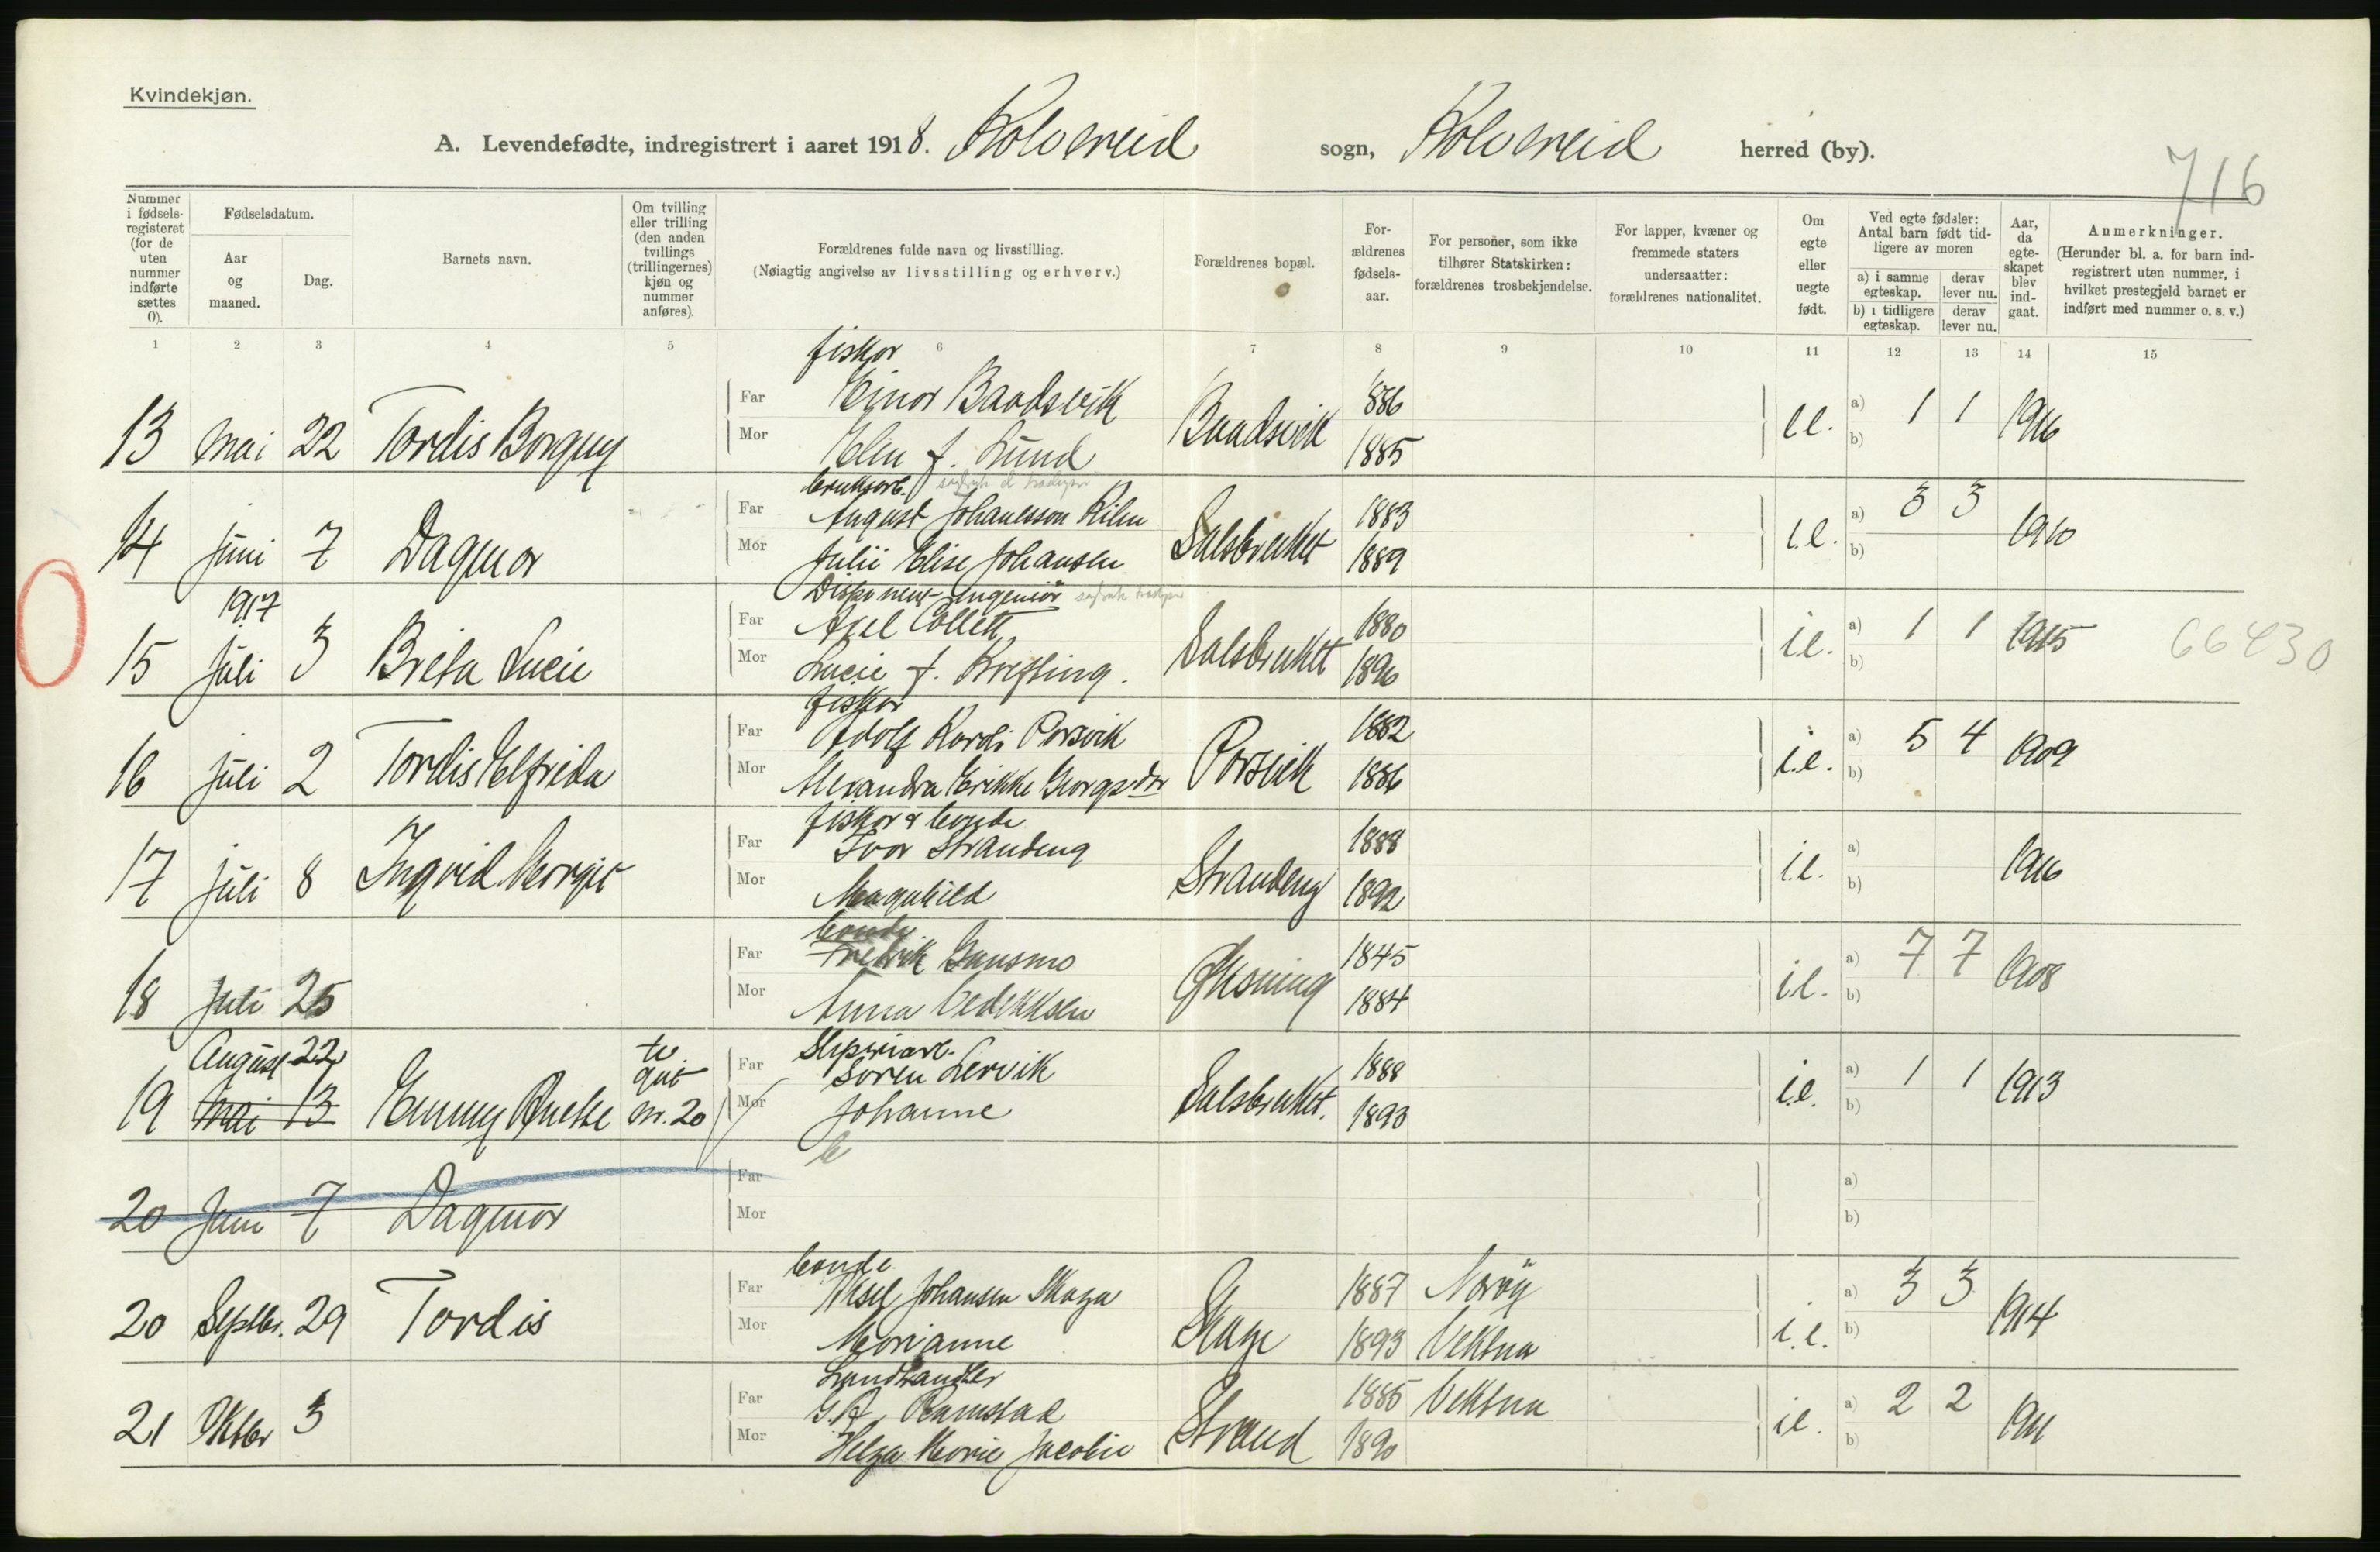 Kvindekjøn.
A. Levendefødte, indregistrert i aaret 1918. Kolvereid sogn, Kolvereid herred (by).
716
Nummer i fødsels-registeret (for de uten nummer indførte sættes 0).
Fødselsdatum.
Aar og maaned.
Dag.
Barnets navn.
Om tvilling eller trilling (den anden tvillings (trillingernes) kjøn og nummer anføres).
Forældrenes fulde navn og livsstilling.
(Nøiagtig angivelse av livsstilling og erhverv.)
Forældrenes bopæl.
For-ældrenes fødsels-aar.
For personer, som ikke tilhører Statskirken: forældrenes trosbekjendelse.
For lapper, kvæner og fremmede staters undersaatter: forældrenes nationalitet.
Om egte eller uegte født.
Ved egte fødsler: Antal barn født tid-ligere av moren
a) i samme egteskap. derav lever nu.
b) i tidligere egteskap. derav lever nu.
Aar, da egte-skapet blev ind-gaat.
Anmerkninger.
(Herunder bl. a. for barn ind-registrert uten nummer, i hvilket prestegjeld barnet er indført med nummer o. s. v.)
1 2 3 4 5 6 7 8 9 10 11 12 13 14 15
fisker
Far Einar Baadsvik 1886 a) 1 1
13 mai 22 Tordis Borguy Baadsvik e.e. 1916
Mor Elen f. Lund 1885 b)
bruksarb.
Far August Johansson Kilen 1883 a) 3 3
14 juni 7 Dagmar Salsbruket i.e. 1910
Mor Julii Elise Johansen 1889 b)
Disponent Ingeniør
1917 Far Axel Collett 1880 a) 1 1
15 Juli 3 Brita Lucie Salsbruket i.e. 1915 66430
Mor Lucie f. Krefting. 1896 b)
fisker
Far Adolf Kordi Porsvik 1882 a) 5 4
16 Juli 2 Tordis Elfrida Porsvik i.e. 1909
Mor Alexandra Erikke Georgsdtr 1886 b)
fisker & bonde
Far Ivar Strandeng 1888 a)
17 Juli 8 Ingrid Margit Strandeng i.e. 1916
Mor Magnhild 1892 b)
bonde
Far Fredrik Gansmo 1845 a) 7 7
18 Juli 25 i.e. 1908
Mor Anna 1884 b)
August 22 tv. gut nr. 20
Far Søren Lervik 1888 a) 1 1
19 mai 13 Emmy Salsbruket. i.e. 1913
Mor Johanne 1893 b)
Far a)
20 Juni 7 Dagmar
Mor b)
bonde
Far Aksel Johansen Skage 1887 Nærøy a) 3 3
20 Septbr. 29 Tordis Skage i.e. 1914
Mor Marianne 1893 Vektna b)
Landhandler
Far G.A. Ramstad 1885 Vektna a) 2 2
21 Oktbr 3 Strand i.e. 1911
Mor Helga Marie Jacobie 1890 b)